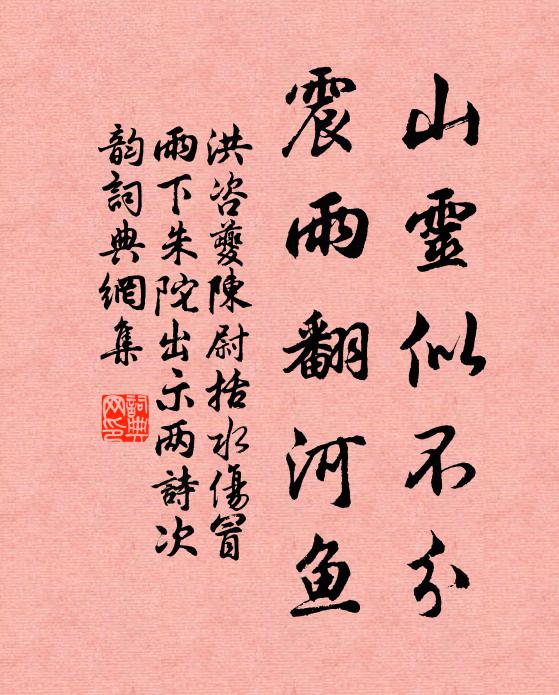 山靈似不分
震雨翻河鱼
洪咨夔陳尉括水傷冒
雨下朱陀出示两詩次
韵詞典網集
詞典網印